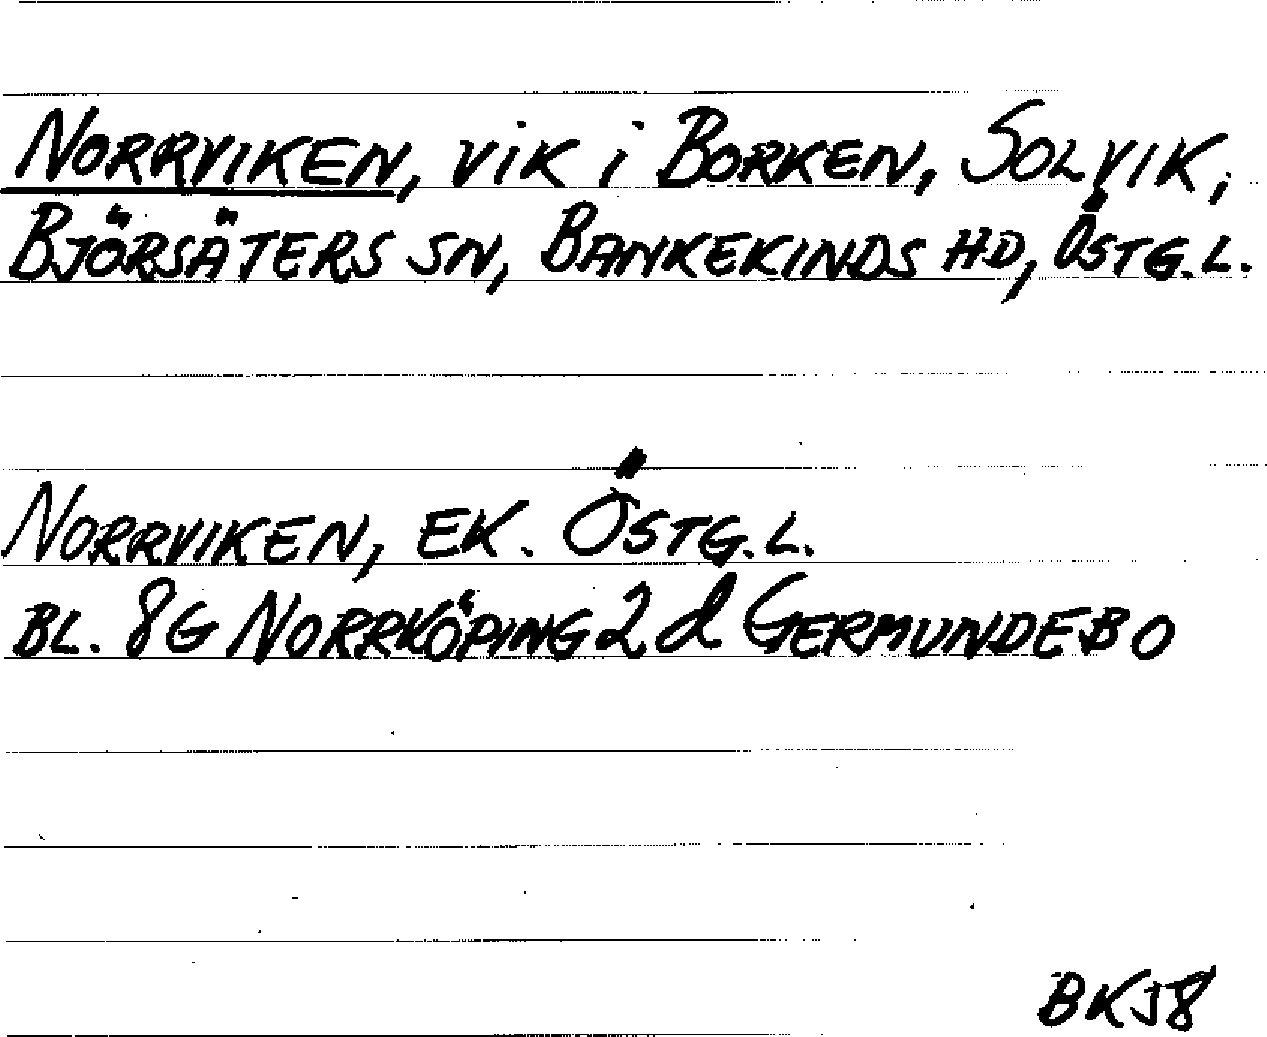 NORRVIKEN, VIK i BORKEN, SOLVIK,
BJÖRSÄTERS SN, BANKEKINDS HD, ÖSTG.L.
NORRVIKEN, EK. ÖSTG.L.
BL. 8G NORRKÖPING 2d GERMUNDEBO
BKJ8